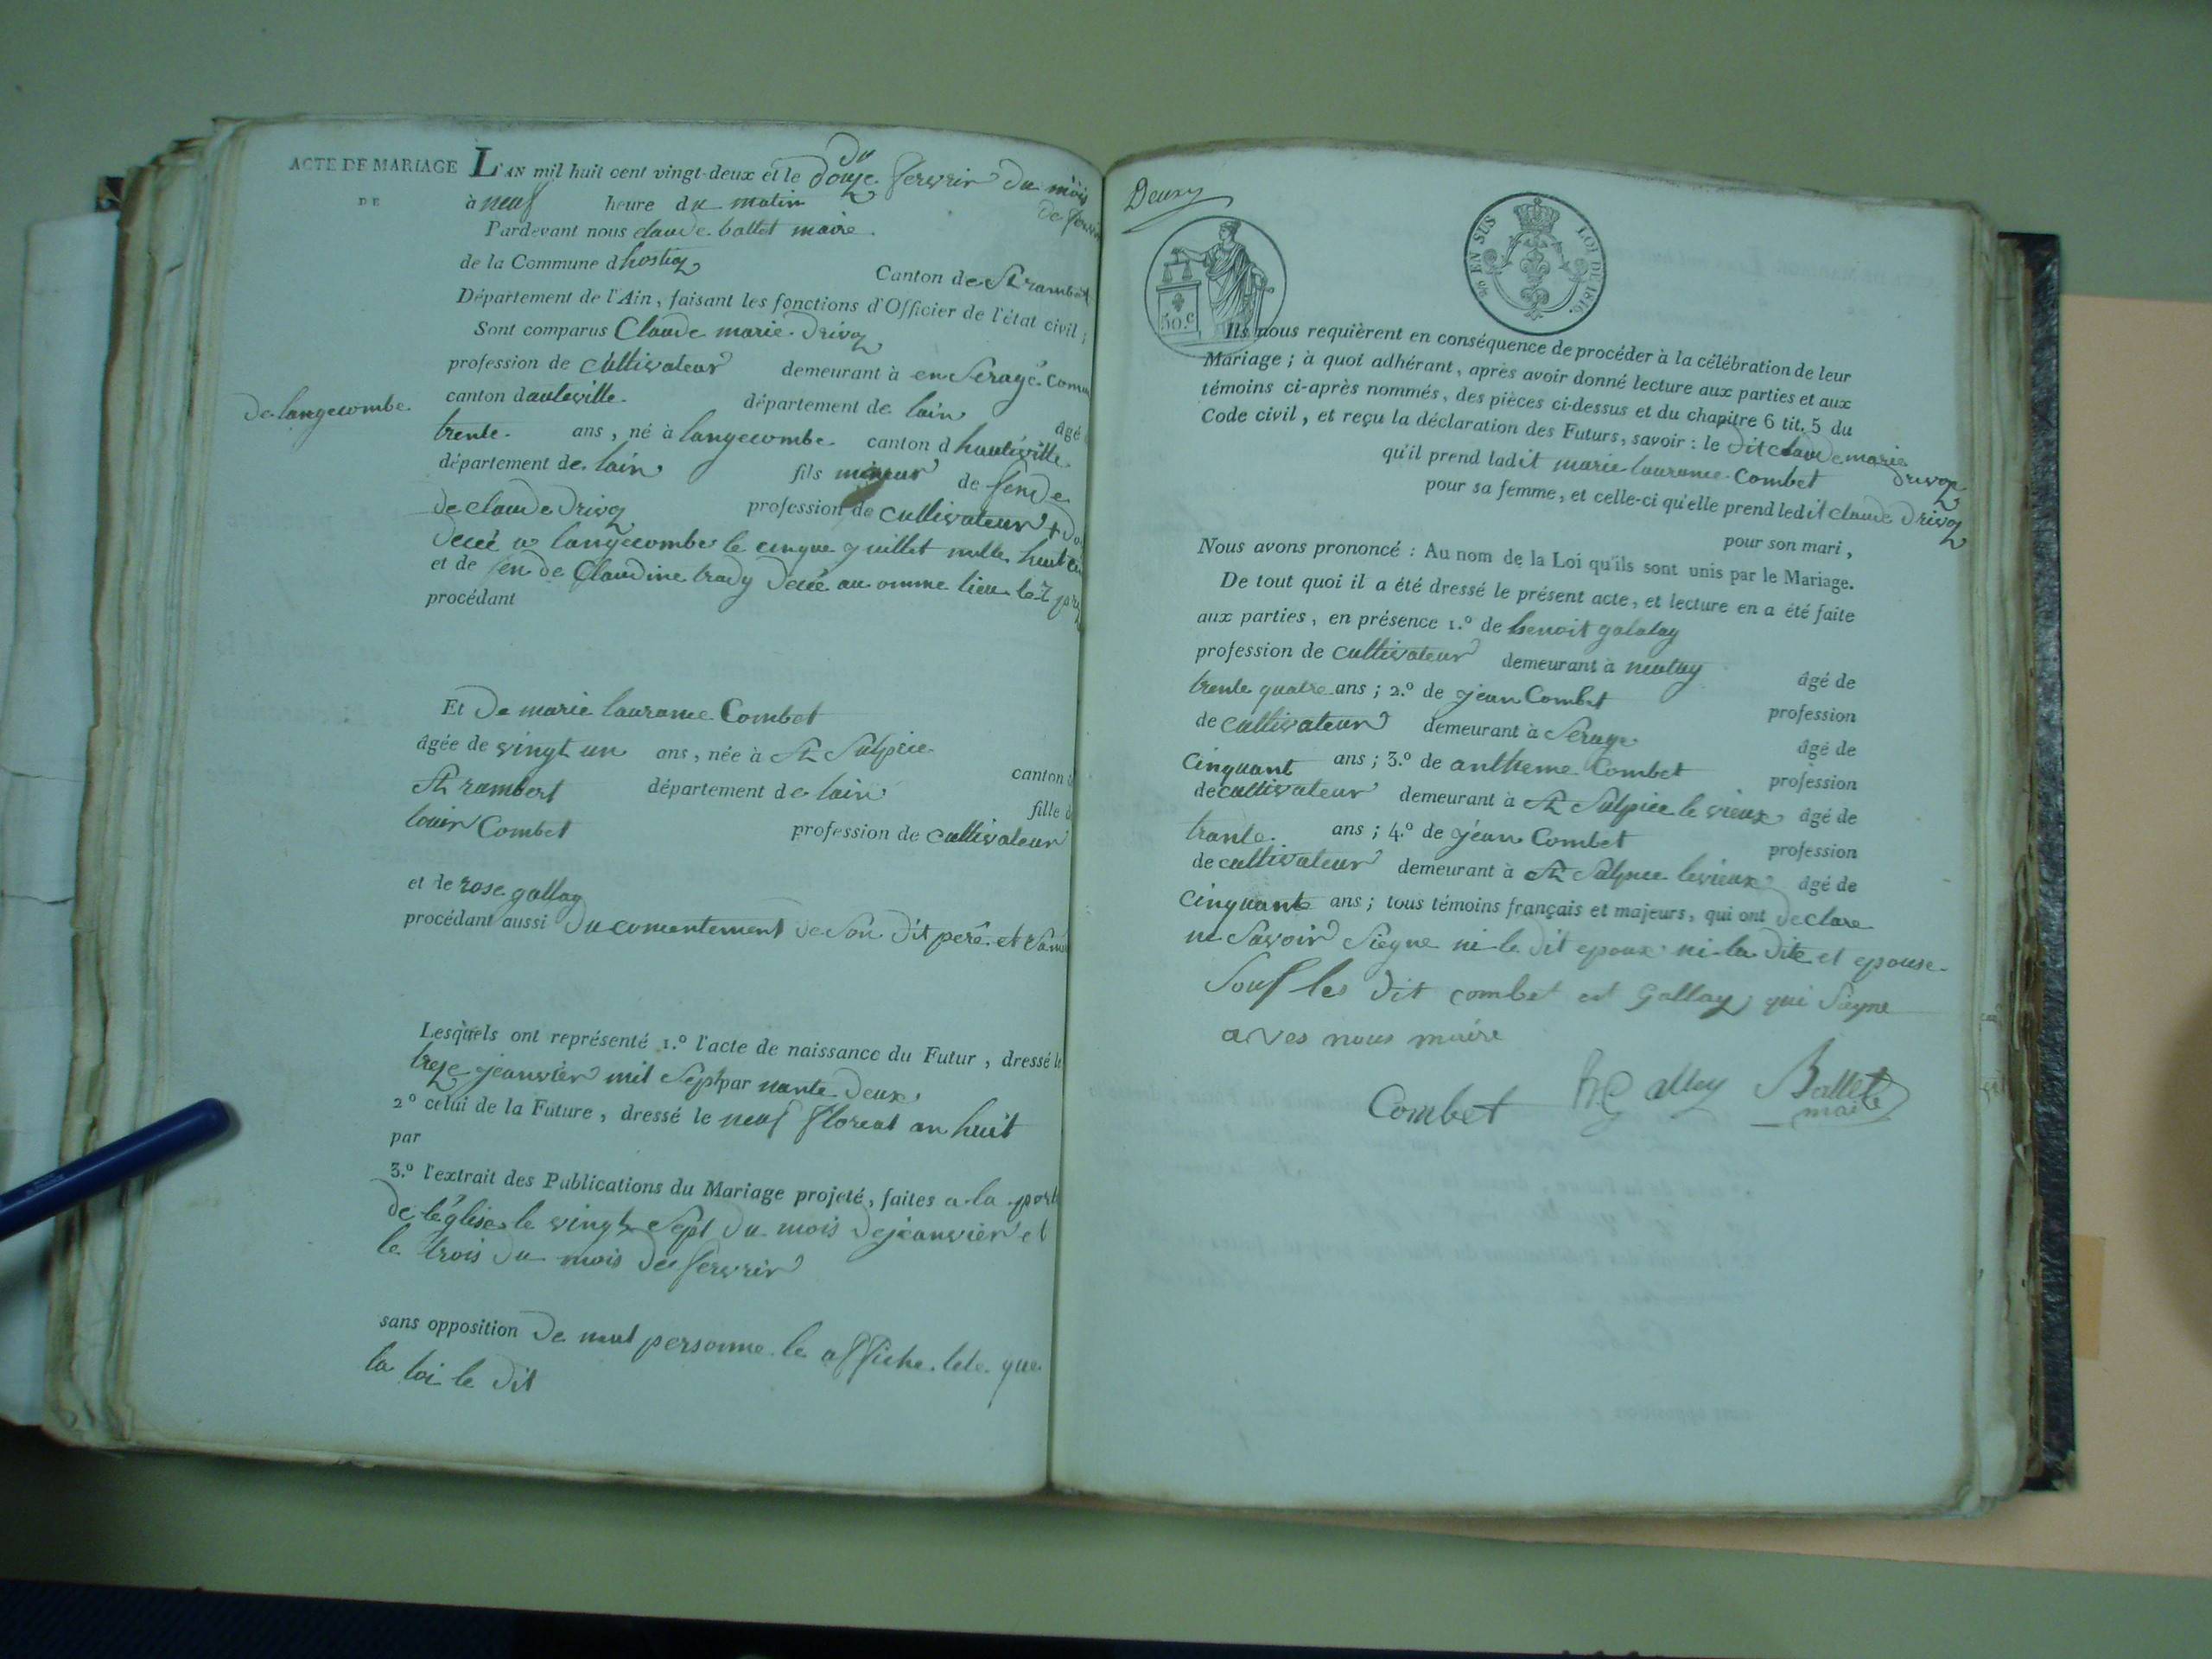 ACTE DE MARIAGE L'AN mil huit cent vingt-deux et le douze fevrrir du mois
DE
à neuf heure du matin
Pardevant nous claude ballet maire
de la Commune dhostiaz
Canton de St rambert
Département de l'Ain, faisant les fonctions d'Officier de l'état civil;
Sont comparus Claude marie
profession de cultivateur demeurant à en Serage
canton dauteville département de lain âgé
De langecombe
trente ans, né à langecombe canton d hauteville
département de lain fils mineur de
de claude profession de cultivateur
le cinque
et de Claudine
procédant
Et De marie laurance Combet
âgée de vingt un ans, née à St Sulpice canton
St rambert département de lain fille
louis Combet profession de cultivateur
et de rose gallay
procédant aussi Du consentement de Son dit pere et
Lesquels ont représenté 1.º l'acte de naissance du Futur, dressé le
treze jeanvier mil Sept par nante Deux
2º celui de la Future, dressé le neuf floreal an huit
par
3.º l'extrait des Publications du Mariage projeté, faites a la port
de léglise le vingt Sept du mois dejeanvier et
le trois du mois de fevrrir
sans opposition De nul personne le affiche tele que
la loi le dit
Deuxy
50.c
EN SUS LOI DE 1816.
Ils nous requièrent en conséquence de procéder à la célébration de leur
Mariage; à quoi adhérant, après avoir donné lecture aux parties et aux
témoins ci-après nommés, des pièces ci-dessus et du chapitre 6 tit. 5 du
Code civil, et reçu la déclaration des Futurs, savoir: le dit claude marie
qu'il prend ladit marie laurance Combet
pour sa femme, et celle-ci qu'elle prend ledit claude
pour son mari,
Nous avons prononcé: Au nom de la Loi qu'ils sont unis par le Mariage.
De tout quoi il a été dressé le présent acte, et lecture en a été faite
aux parties, en présence 1.º de benoit
profession de cultivateur demeurant à âgé de
trente quatre ans; 2.º de jean Combet profession
de cultivateur demeurant à Serage âgé de
Cinquant ans; 3.º de antheme Combet profession
de cultivateur demeurant à St Sulpice le vieux âgé de
trante ans; 4.º de jean Combet profession
de cultivateur demeurant à St Sulpice levieux âgé de
Cinquante ans; tous témoins français et majeurs, qui ont declare
ne Savoir Siegne ni le dit epoux ni la dite et epouse
Souf les dit combet et gallay qui Siegne
aves nous maire
Combet Ballet
maire